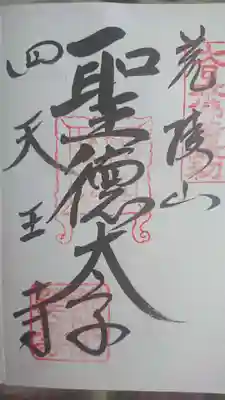 荒陵山
聖徳太子
四天王寺